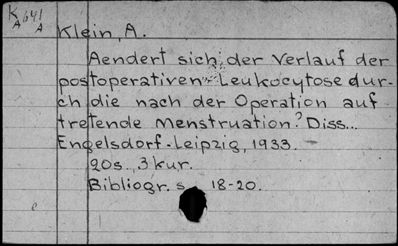 K 641
A A
Klein, A.
Aendert sich der Verlauf der
postoperativen Leukocytose dur-
ch die nach der Operation auf
tretende Menstruation? Diss...
Engelsdorf-Leipzig, 1933.
20s., 3 kur.
Bibliogr. s. 18-20.
e